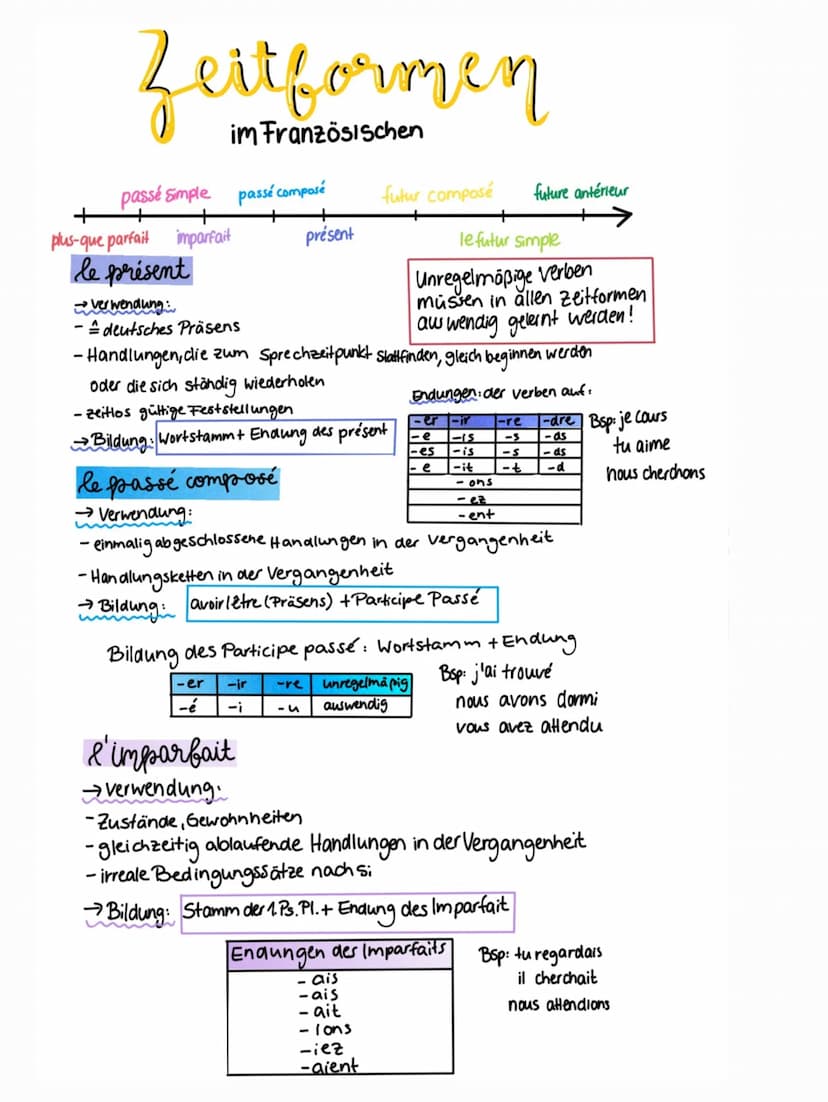 Zeitformen
im Französischen
passé simple passé composé futur composé future antérieur
plus-que parfait imparfait présent le futur simple
le présent
Unregelmäßige Verben
müssen in allen Zeitformen
auswendig gelernt werden!
→ Verwendung:
- ≙ deutsches Präsens
- Handlungen, die zum Sprechzeitpunkt stattfinden, gleich beginnen werden
oder die sich ständig wiederholen
- zeitlos gültige Feststellungen
→ Bildung: Wortstamm + Endung des présent
Endungen: der verben auf:
-er -ir -re -dre
-e -is -s -ds
-es -is -s -ds
-e -it -t -d
- ons
- ez
- ent
Bsp: je cours
tu aime
nous cherchons
le passé composé
→ Verwendung:
- einmalig abgeschlossene Handlungen in der Vergangenheit
- Handlungsketten in der Vergangenheit
→ Bildung: avoir/être (Präsens) + Participe Passé
Bildung des Participe passé: Wortstamm + Endung
-er -ir -re unregelmäßig
-é -i -u auswendig
Bsp: j'ai trouvé
nous avons dormi
vous avez attendu
l'imparfait
→ Verwendung:
- Zustände, Gewohnheiten
- gleichzeitig ablaufende Handlungen in der Vergangenheit
- irreale Bedingungssätze nach si
→ Bildung: Stamm der 1. Ps. Pl. + Endung des Imparfait
Endungen des Imparfaits
- ais
- ais
- ait
- ions
- iez
- aient
Bsp: tu regardais
il cherchait
nous attendions